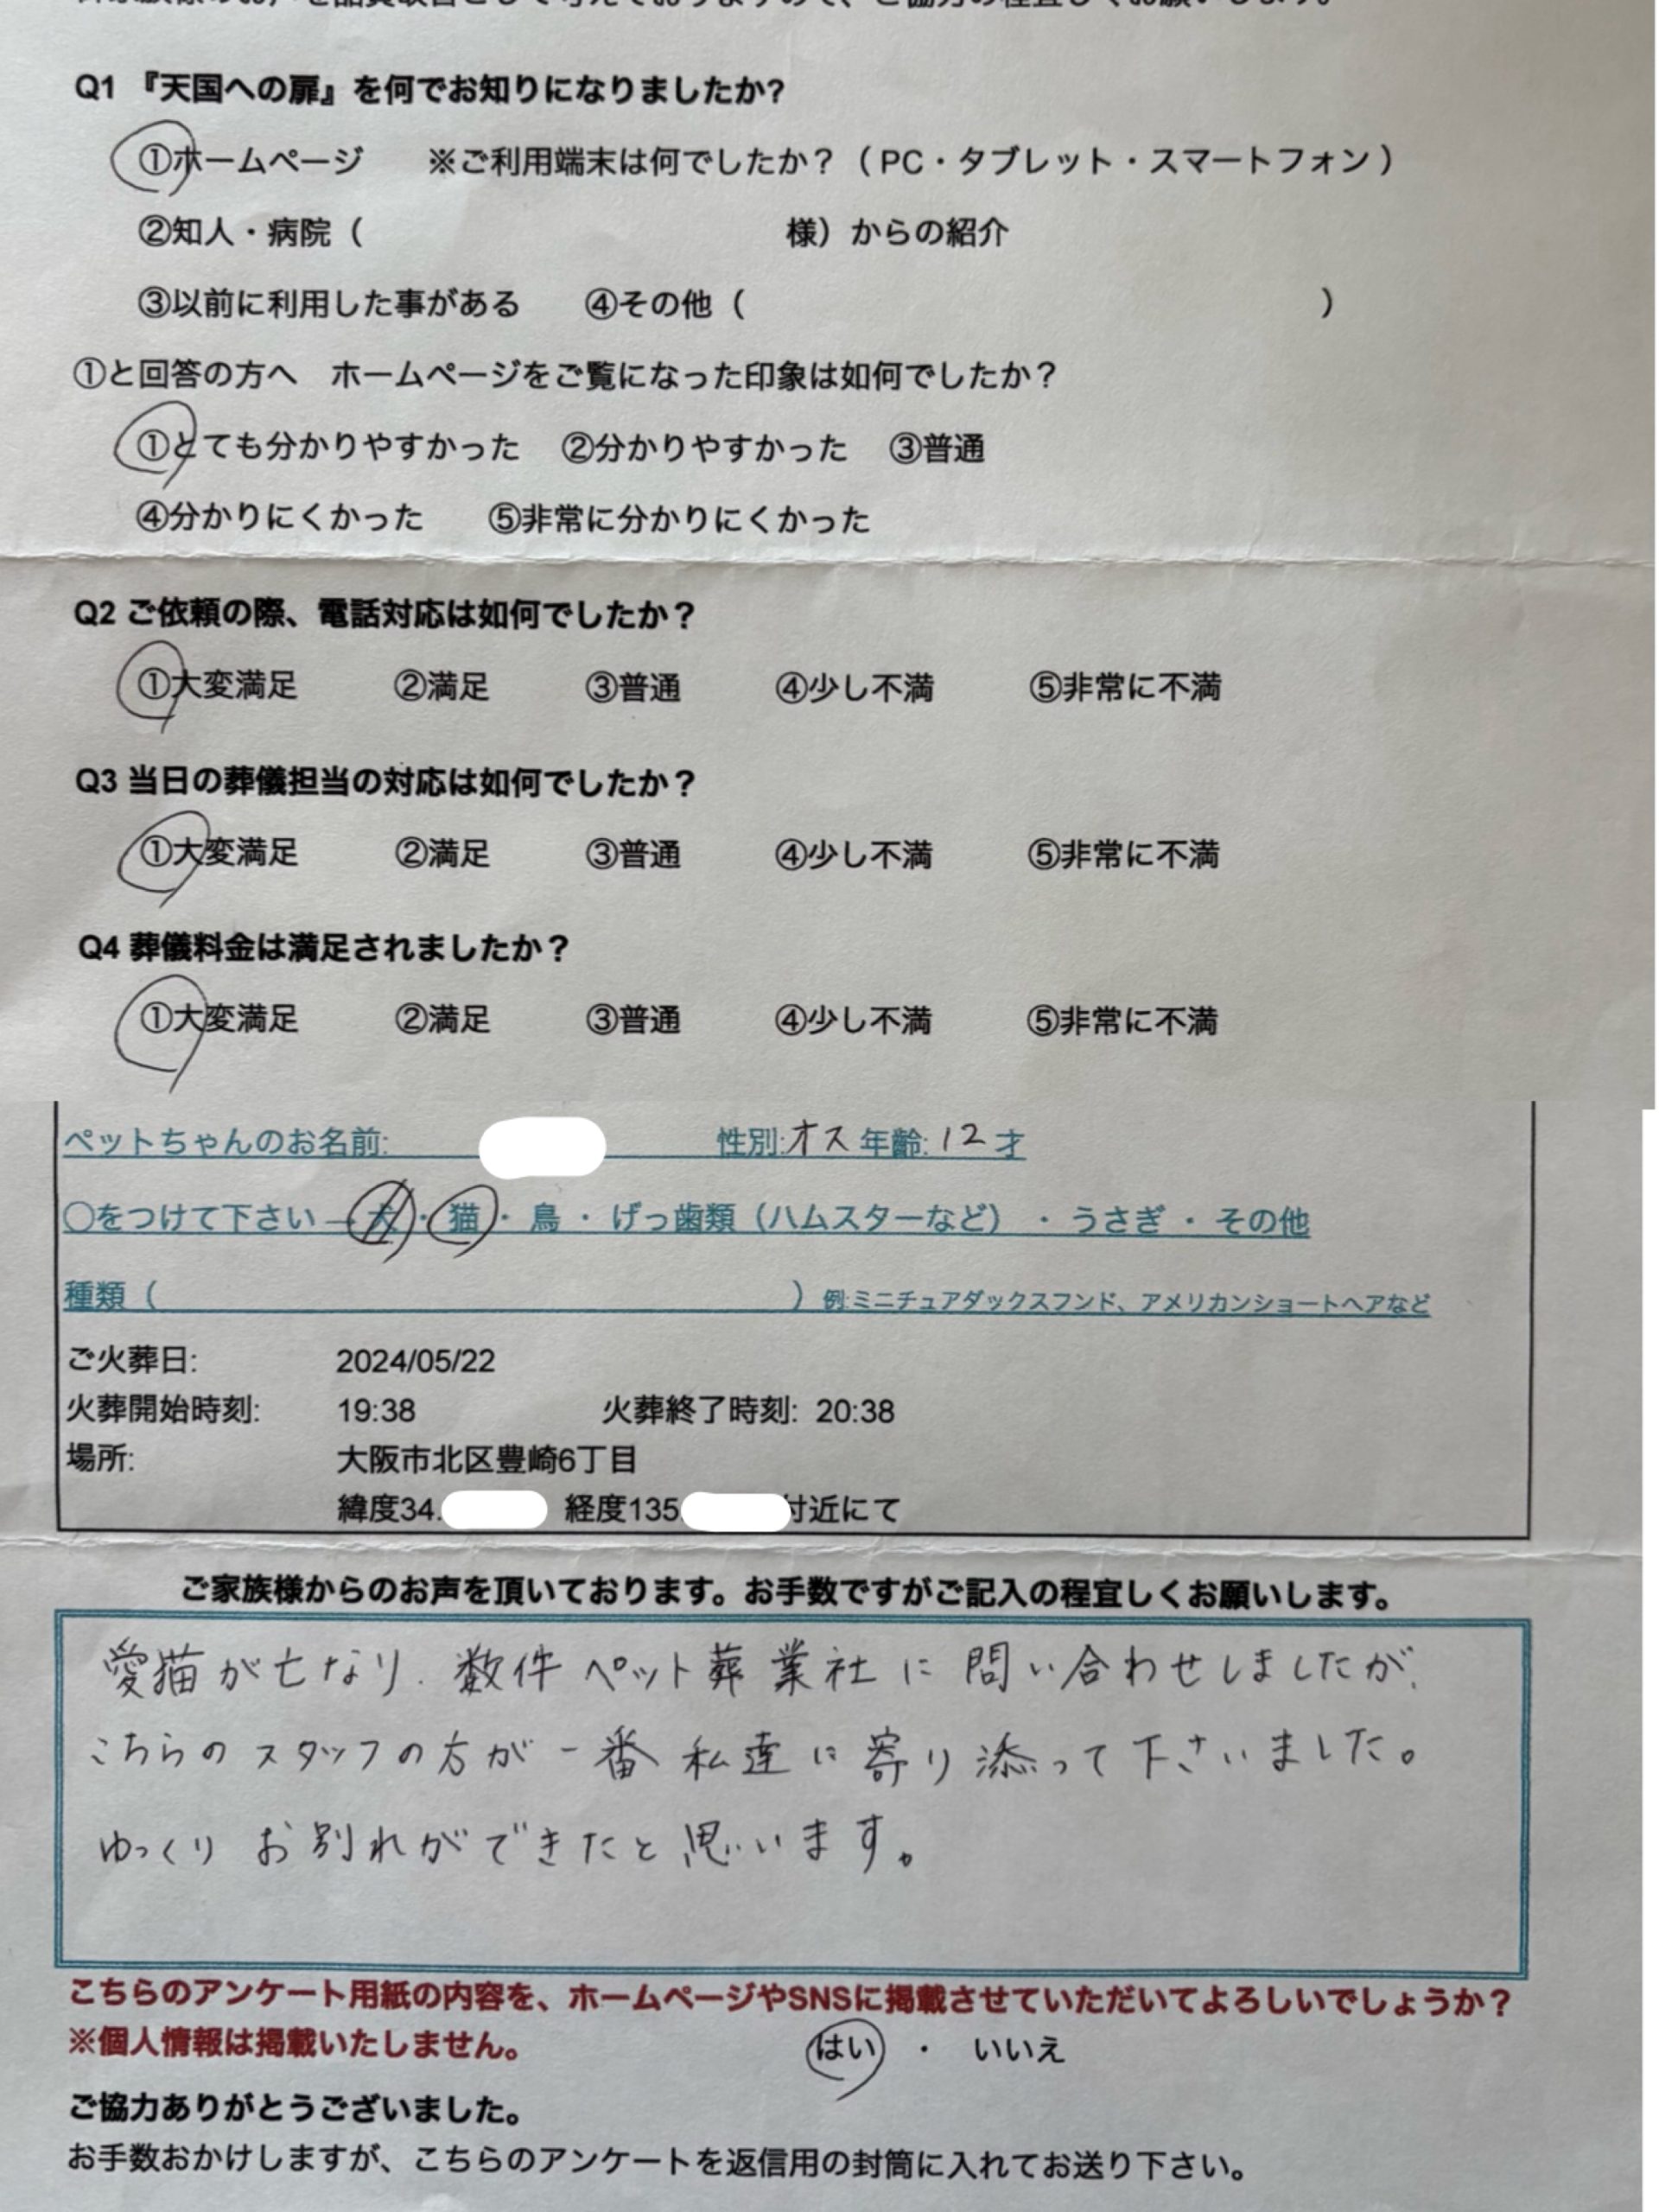 Q1 『天国への扉』を何でお知りになりましたか?
①ホームページ ※ご利用端末は何でしたか？（PC・タブレット・スマートフォン）
②知人・病院（ 様）からの紹介
③以前に利用した事がある ④その他（ ）
①と回答の方へ ホームページをご覧になった印象は如何でしたか？
①とても分かりやすかった ②分かりやすかった ③普通
④分かりにくかった ⑤非常に分かりにくかった
Q2 ご依頼の際、電話対応は如何でしたか？
①大変満足 ②満足 ③普通 ④少し不満 ⑤非常に不満
Q3 当日の葬儀担当の対応は如何でしたか？
①大変満足 ②満足 ③普通 ④少し不満 ⑤非常に不満
Q4 葬儀料金は満足されましたか？
①大変満足 ②満足 ③普通 ④少し不満 ⑤非常に不満
ペットちゃんのお名前: 性別:オス 年齢:12才
○をつけて下さい→犬・猫・鳥・げっ歯類（ハムスターなど）・うさぎ・その他
種類（ ）例:ミニチュアダックスフンド、アメリカンショートヘアなど
ご火葬日: 2024/05/22
火葬開始時刻: 19:38 火葬終了時刻: 20:38
場所: 大阪市北区豊崎6丁目
緯度34. 経度135 付近にて
ご家族様からのお声を頂いております。お手数ですがご記入の程宜しくお願いします。
愛猫が亡なり、数件ペット葬業社に問い合わせしましたが、
こちらのスタッフの方が一番私達に寄り添って下さいました。
ゆっくりお別れができたと思います。
こちらのアンケート用紙の内容を、ホームページやSNSに掲載させていただいてよろしいでしょうか？
※個人情報は掲載いたしません。 はい ・ いいえ
ご協力ありがとうございました。
お手数おかけしますが、こちらのアンケートを返信用の封筒に入れてお送り下さい。